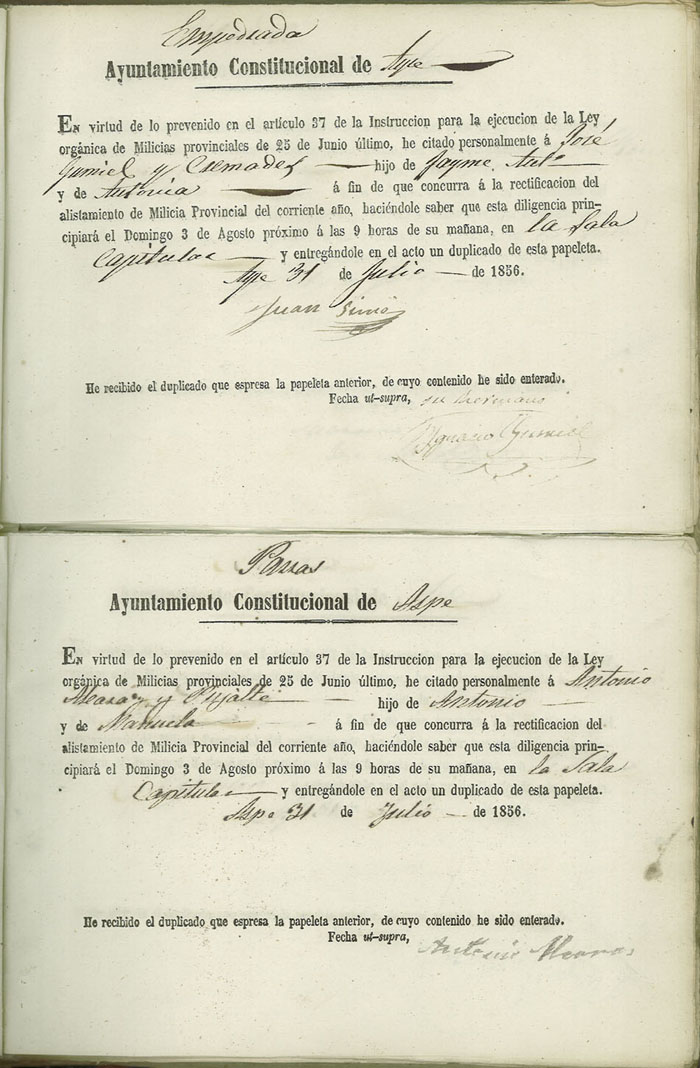 Empedrada
Ayuntamiento Constitucional de Aspe
EN virtud de lo prevenido en el artículo 37 de la Instruccion para la ejecucion de la Ley
orgánica de Milicias provinciales de 25 de Junio último, he citado personalmente á José
Gumiel y Cremades hijo de Jayme Antº
y de Antonia á fin de que concurra á la rectificacion del
alistamiento de Milicia Provincial del corriente año, haciéndole saber que esta diligencia prin-
cipiará el Domingo 3 de Agosto próximo á las 9 horas de su mañana, en la Sala
Capitular y entregándole en el acto un duplicado de esta papeleta.
Aspe 31 de Julio de 1856.
Juan Simó
He recibido el duplicado que espresa la papeleta anterior, de cuyo contenido he sido enterado.
Fecha ut-supra, su hermano
Ignacio Gumiel
Parras
Ayuntamiento Constitucional de Aspe
EN virtud de lo prevenido en el artículo 37 de la Instruccion para la ejecucion de la Ley
orgánica de Milicias provinciales de 25 de Junio último, he citado personalmente á Antonio
y Pujalte hijo de Antonio
y de Manuela á fin de que concurra á la rectificacion del
alistamiento de Milicia Provincial del corriente año, haciéndole saber que esta diligencia prin-
cipiará el Domingo 3 de Agosto próximo á las 9 horas de su mañana, en la Sala
Capitular y entregándole en el acto un duplicado de esta papeleta.
Aspe 31 de Julio de 1856.
He recibido el duplicado que espresa la papeleta anterior, de cuyo contenido he sido enterado.
Fecha ut-supra, Antonio